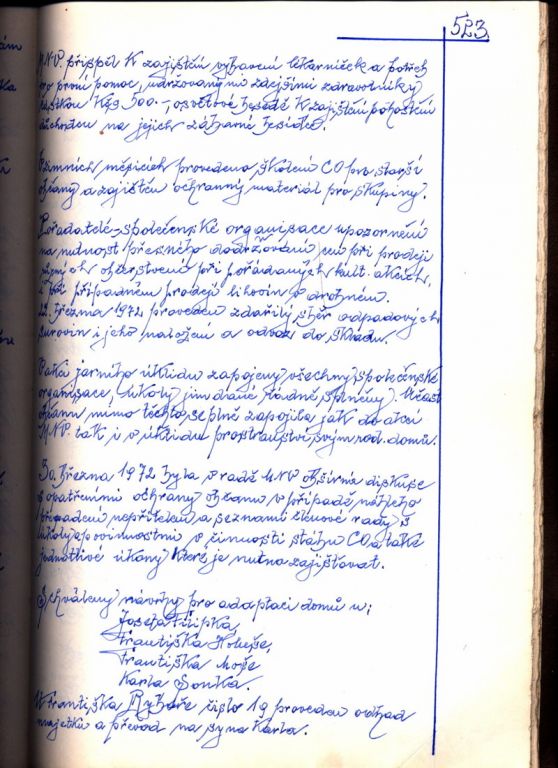 523.
M.N.V. přispěl k zajištění vybavení lékárniček a potřeb
pro první pomoc, udržovanými zdejšími zdravotníky
částkou Kčs 500.-, osvětové besedě k zajištění pohoštění
důchodcu na jejich zábavné besídce.
V zimních měsících provedeno školení CO pro starší
občany a zajištěn ochranný materiál pro skupiny.
Pořadatelé-společenské organisace upozorněni
na nutnost přesného dodržování cen při prodeji
různých občerstvení při pořádaných kult. akcích,
i při případném prodeji lihovin v drobném.
22. března 1972 proveden zdařilý sběr odpadových
surovin i jeho naložení a odvoz do skladu.
V akci jarního úklidu zapojeny všechny společenské
organisace, úkoly jim dané řádně splněny. Účast
občanu mimo těchto se plně zapojila jak do akcí
M.N.V. tak i v úklidu prostranství svým rod. domů.
30. března 1972 byla v radě MNV obšírná diskuse
s opatřeními ochrany občanu v případě náhlého
přepadení nepřítelem a seznámi členové rady s
úkoly a povinnostmi v činnosti štábu CO a také
jednotlivé úkony které je nutno zajišťovat.
Schváleny návrhy pro adaptaci domů u;
Josefa Filipka,
Františka
Františka
Karla Sonka.
U Františka Rybáře číslo 19 proveden odhad
majetku a převod na syna Karla.